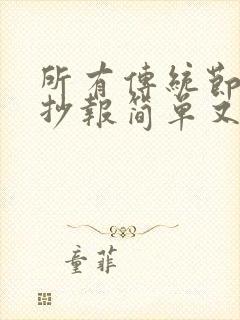 所有傳統節
抄報簡單又
童菲